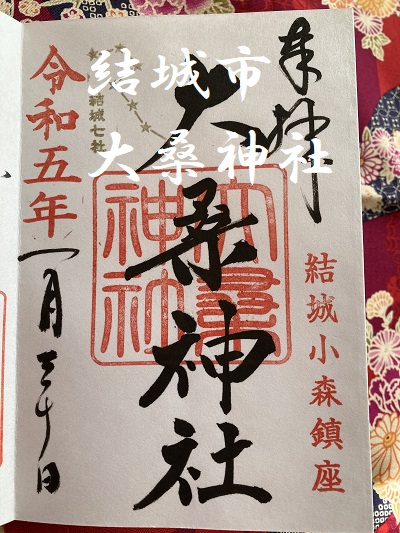 結城市
大桑神社
奉拝
結城小森鎮座
大桑神社
大桑神社
結城七社
令和五年
一月三十日